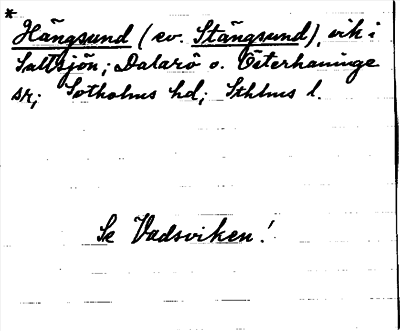 *
Hängsund (ev. Stängsund), vik i
Saltsjön; Dalarö o. Österhaninge
sr; Sotholms hd; Sthlms l.
Se Vadsviken!